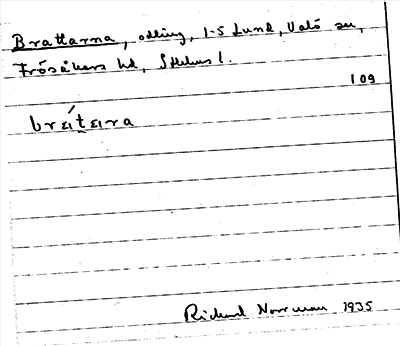 Brattarna, odling, 1-5 Lund, Valö sn,
Frösåkers hd, Sthlms l.
109
Richard Norrman 1935